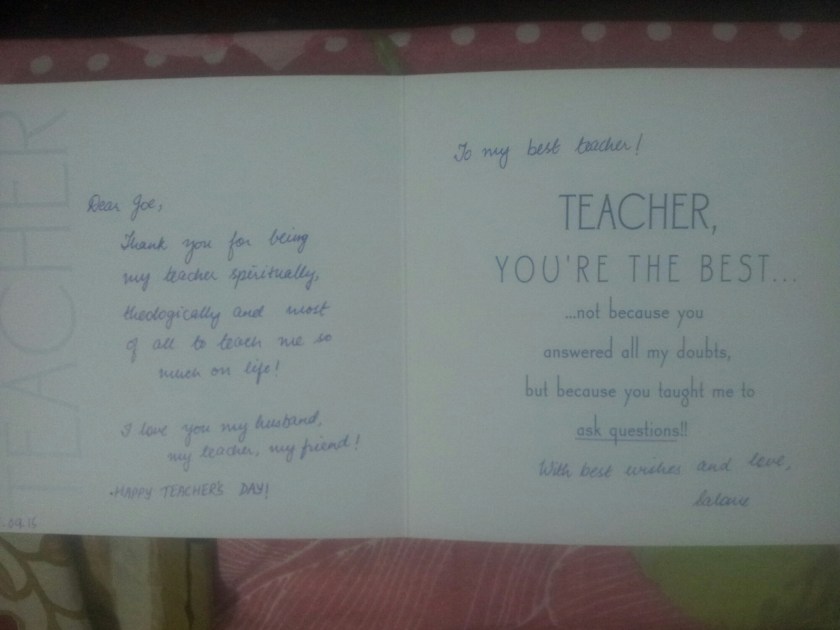 TEACHER
Dear Joe,
Thank you for being
my teacher spiritually,
theologically and most
of all to teach me so
much on life!
I love you my husband,
my teacher, my friend!
HAPPY TEACHER'S DAY!
To my best teacher!
TEACHER,
YOU'RE THE BEST...
...not because you
answered all my doubts,
but because you taught me to
ask questions!!
With best wishes and love,